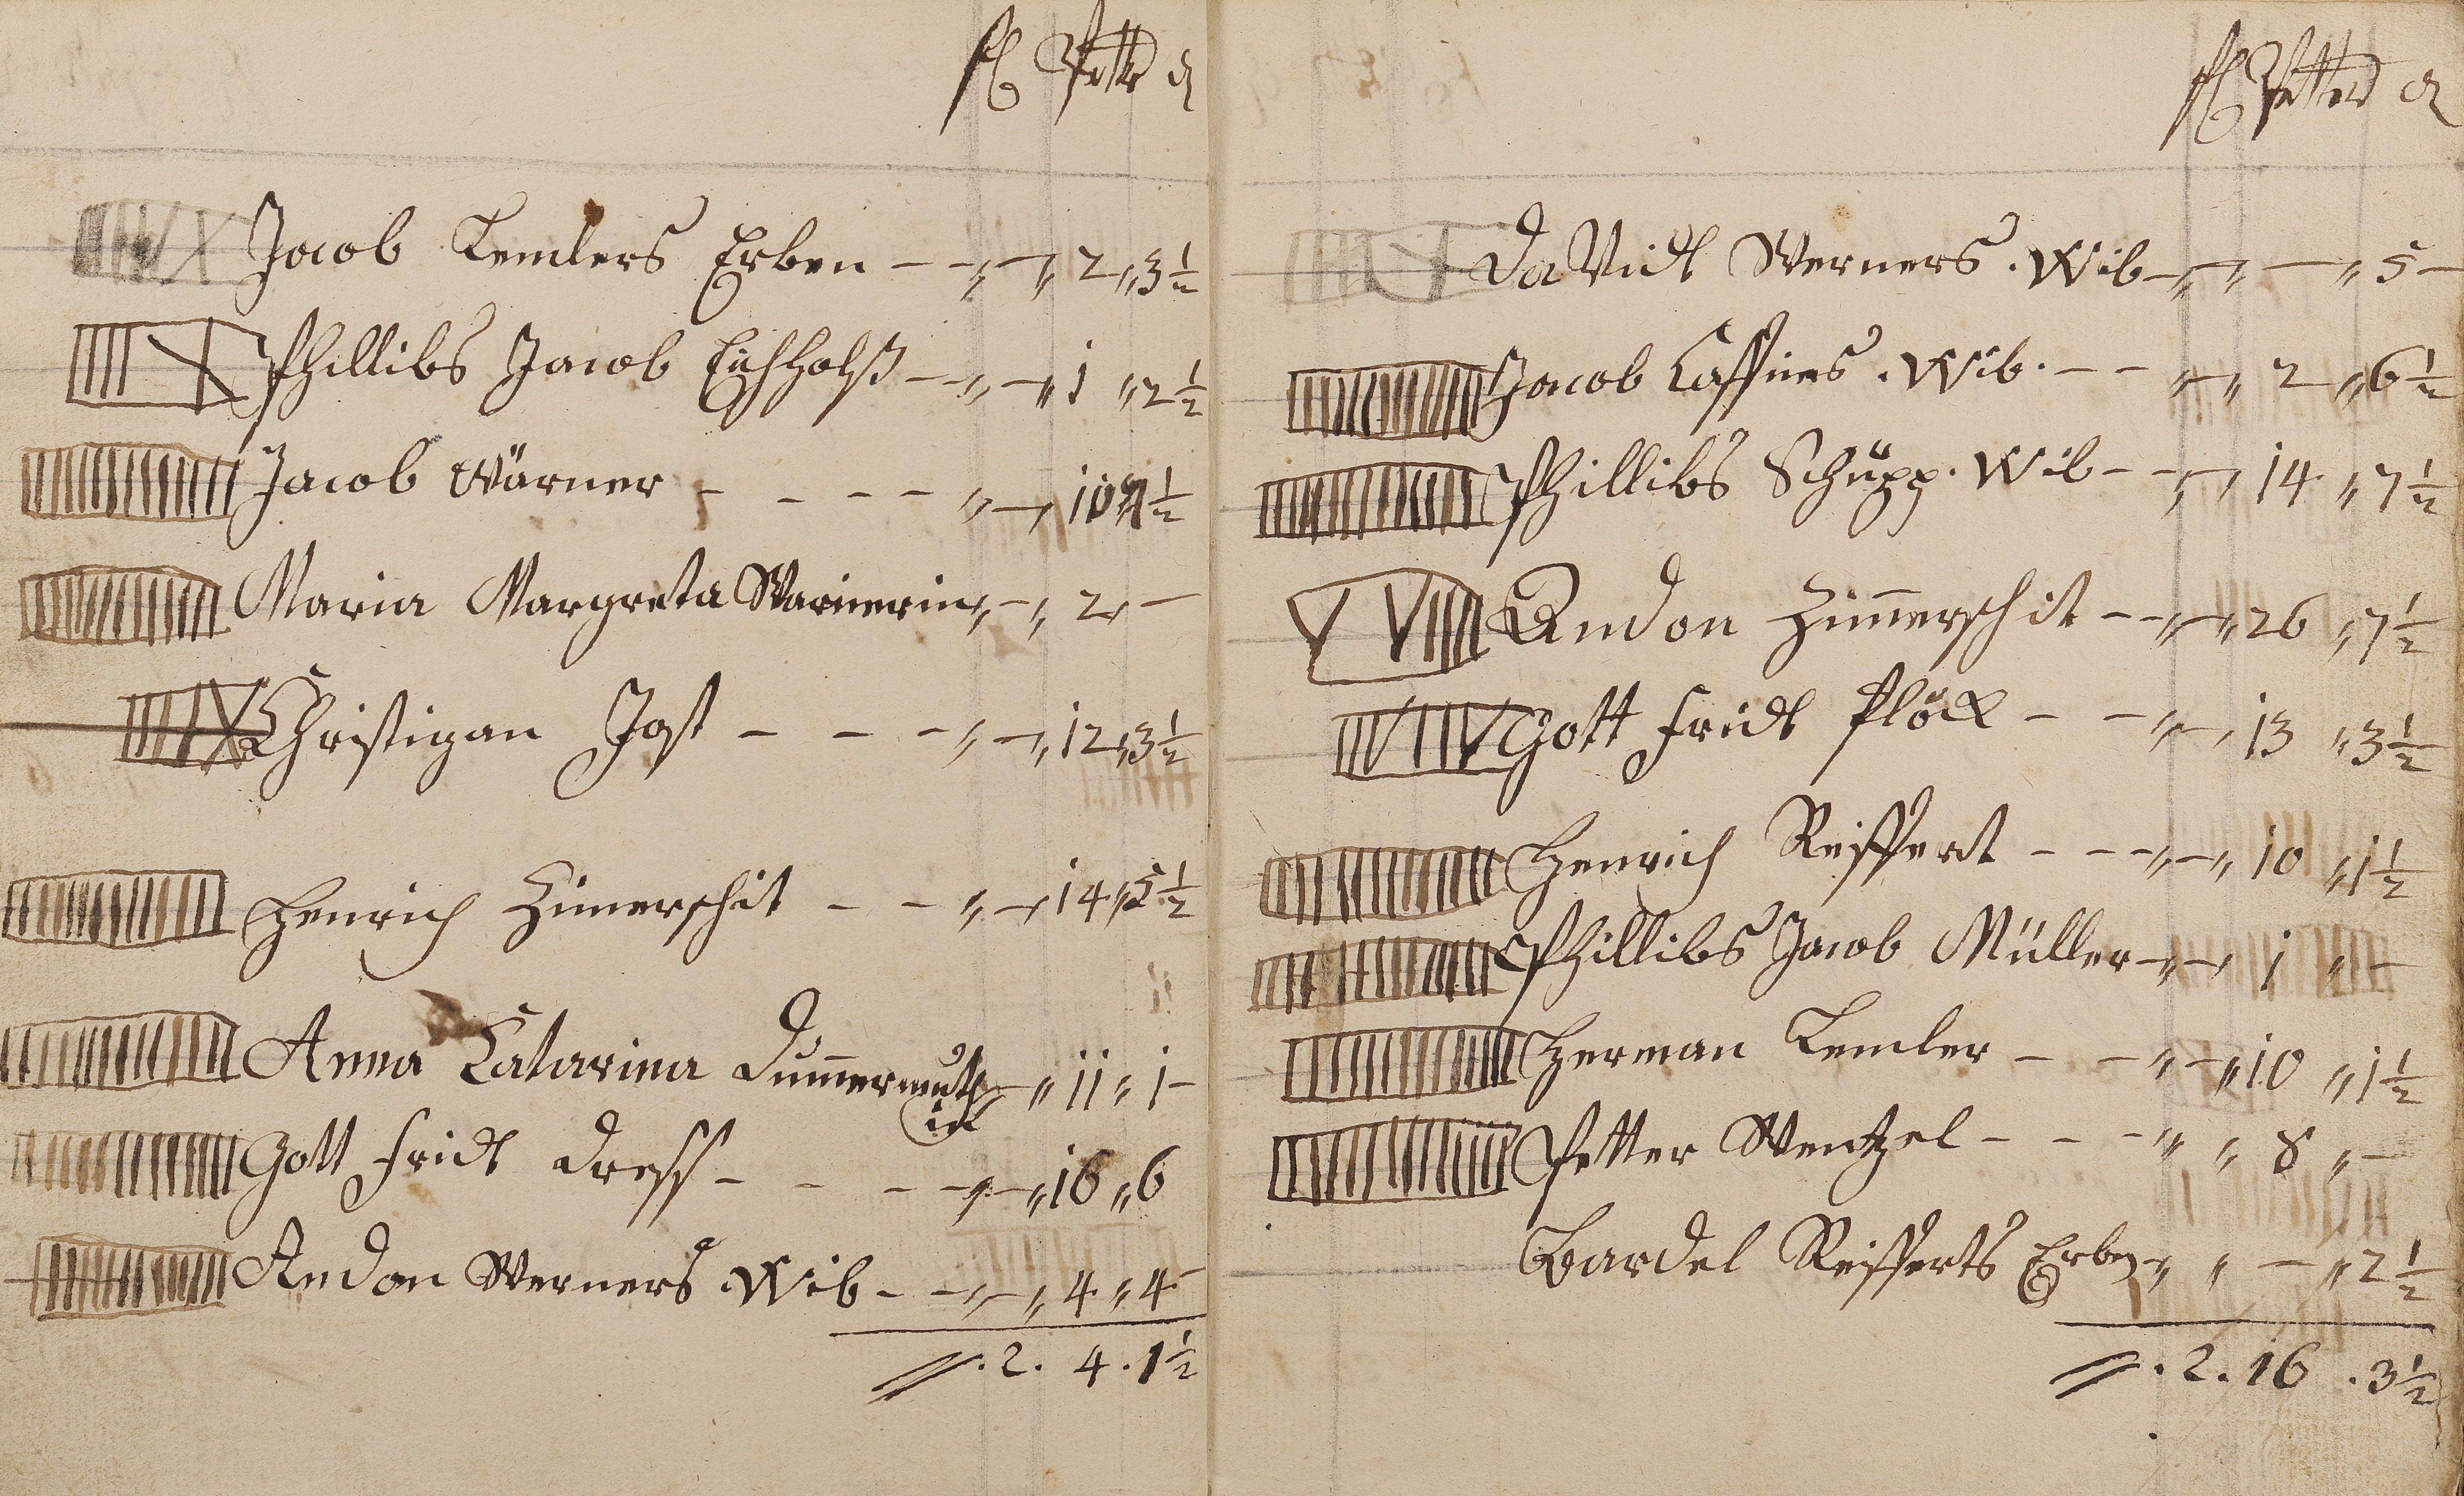 fl Petter ₰
Jacob Kemlers Erben - - „ - „ 2 „ 3 1/2
Phillibs Jacob Eichholß - „ - „ 1 „ 2 1/2
Jacob Wärner - - - - „ - „ 10 „ 1/2
Maria Margreta Warnerin „ - „ 2 „ -
Christigan Jost - - - „ - „ 12 „ 3 1/2
Henrich Zimerschit - - „ - „ 14 „ 5 1/2
Anna Catarina Dum̄ermuth „ 11 „ 1 -
in
Gott fridt Dress - - - „ - „ 16 „ 6
Andon Werners Wib - - „ - „ 4 „ 4 -
. 2 . 4 . 1 1/2
fl Petter ₰
DaVidt Werners . Wib - „ - „ - „ 5 -
Jacob Cassines . Wib . - - „ - „ 2 „ 6 1/2
Phillibs Schüpp . Wib - - „ - „ 14 „ 7 1/2
Andon Zim̄erschit - - „ - „ 26 „ 7 1/2
Gott fridt Plöck - - „ - „ 13 „ 3 1/2
Henrich Reiffert - - - „ - „ 10 „ 1 1/2
Phillibs Jacob Müller - „ - „ 1 „ -
Herman Kemler - - „ - „ 10 „ 1 1/2
Petter Wentzel - - - „ „ 8 „ -
Bardel Reifferts Erben - „ „ - „ 2 1/2
. 2 . 16 . 3 1/2